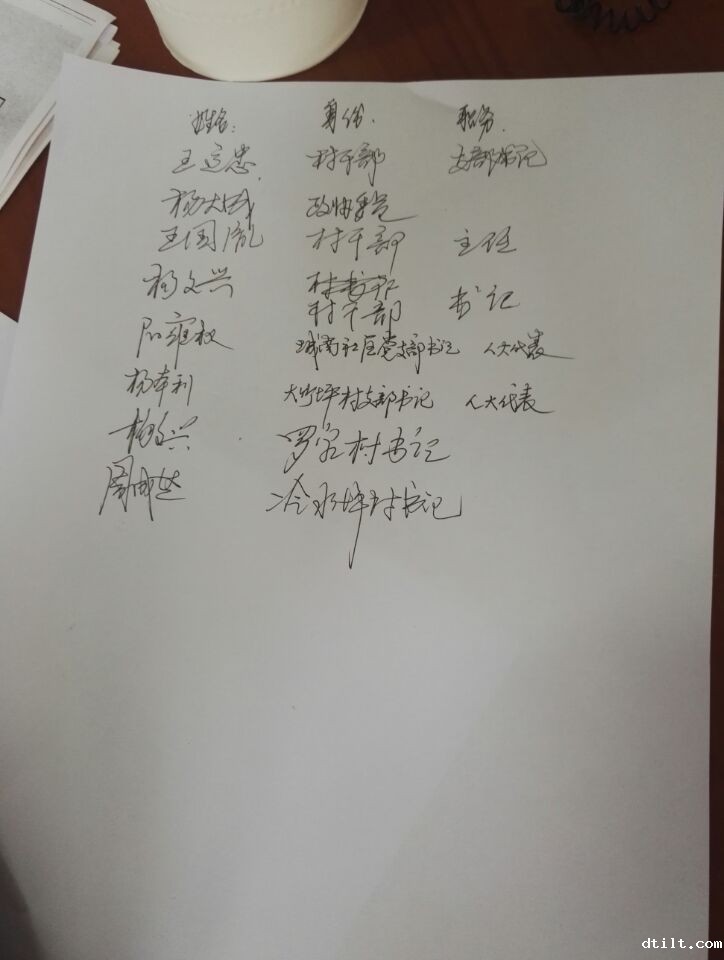 姓名: 身份 职务.
王定忠 村干部 支部书记
杨大成 政协委员
王国胤 村干部 主任
杨文兴
村干部 书记
雍权 城南社区党支部书记 人大代表
杨本利 大竹坪村支部书记 人大代表
杨文兴 罗家村书记
周 冷水坪村书记
dtilt.com